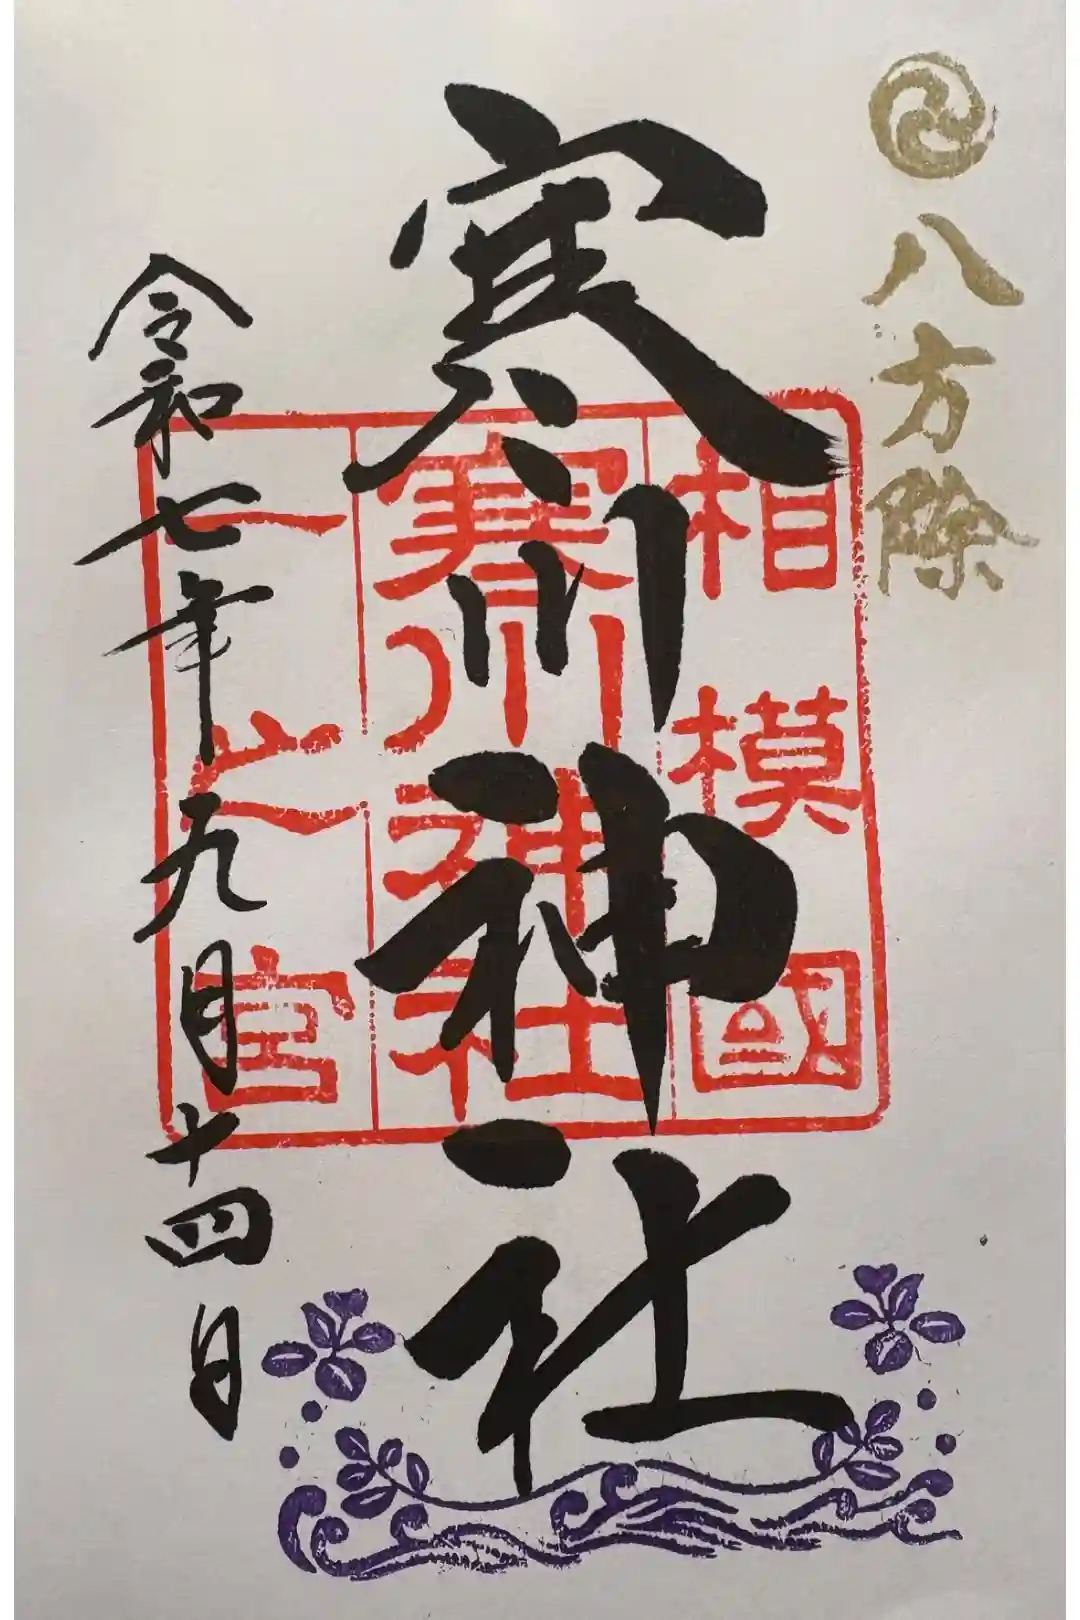 八方除
寒川神社
相模國
寒川神社
一之宮
令和七年九月十四日